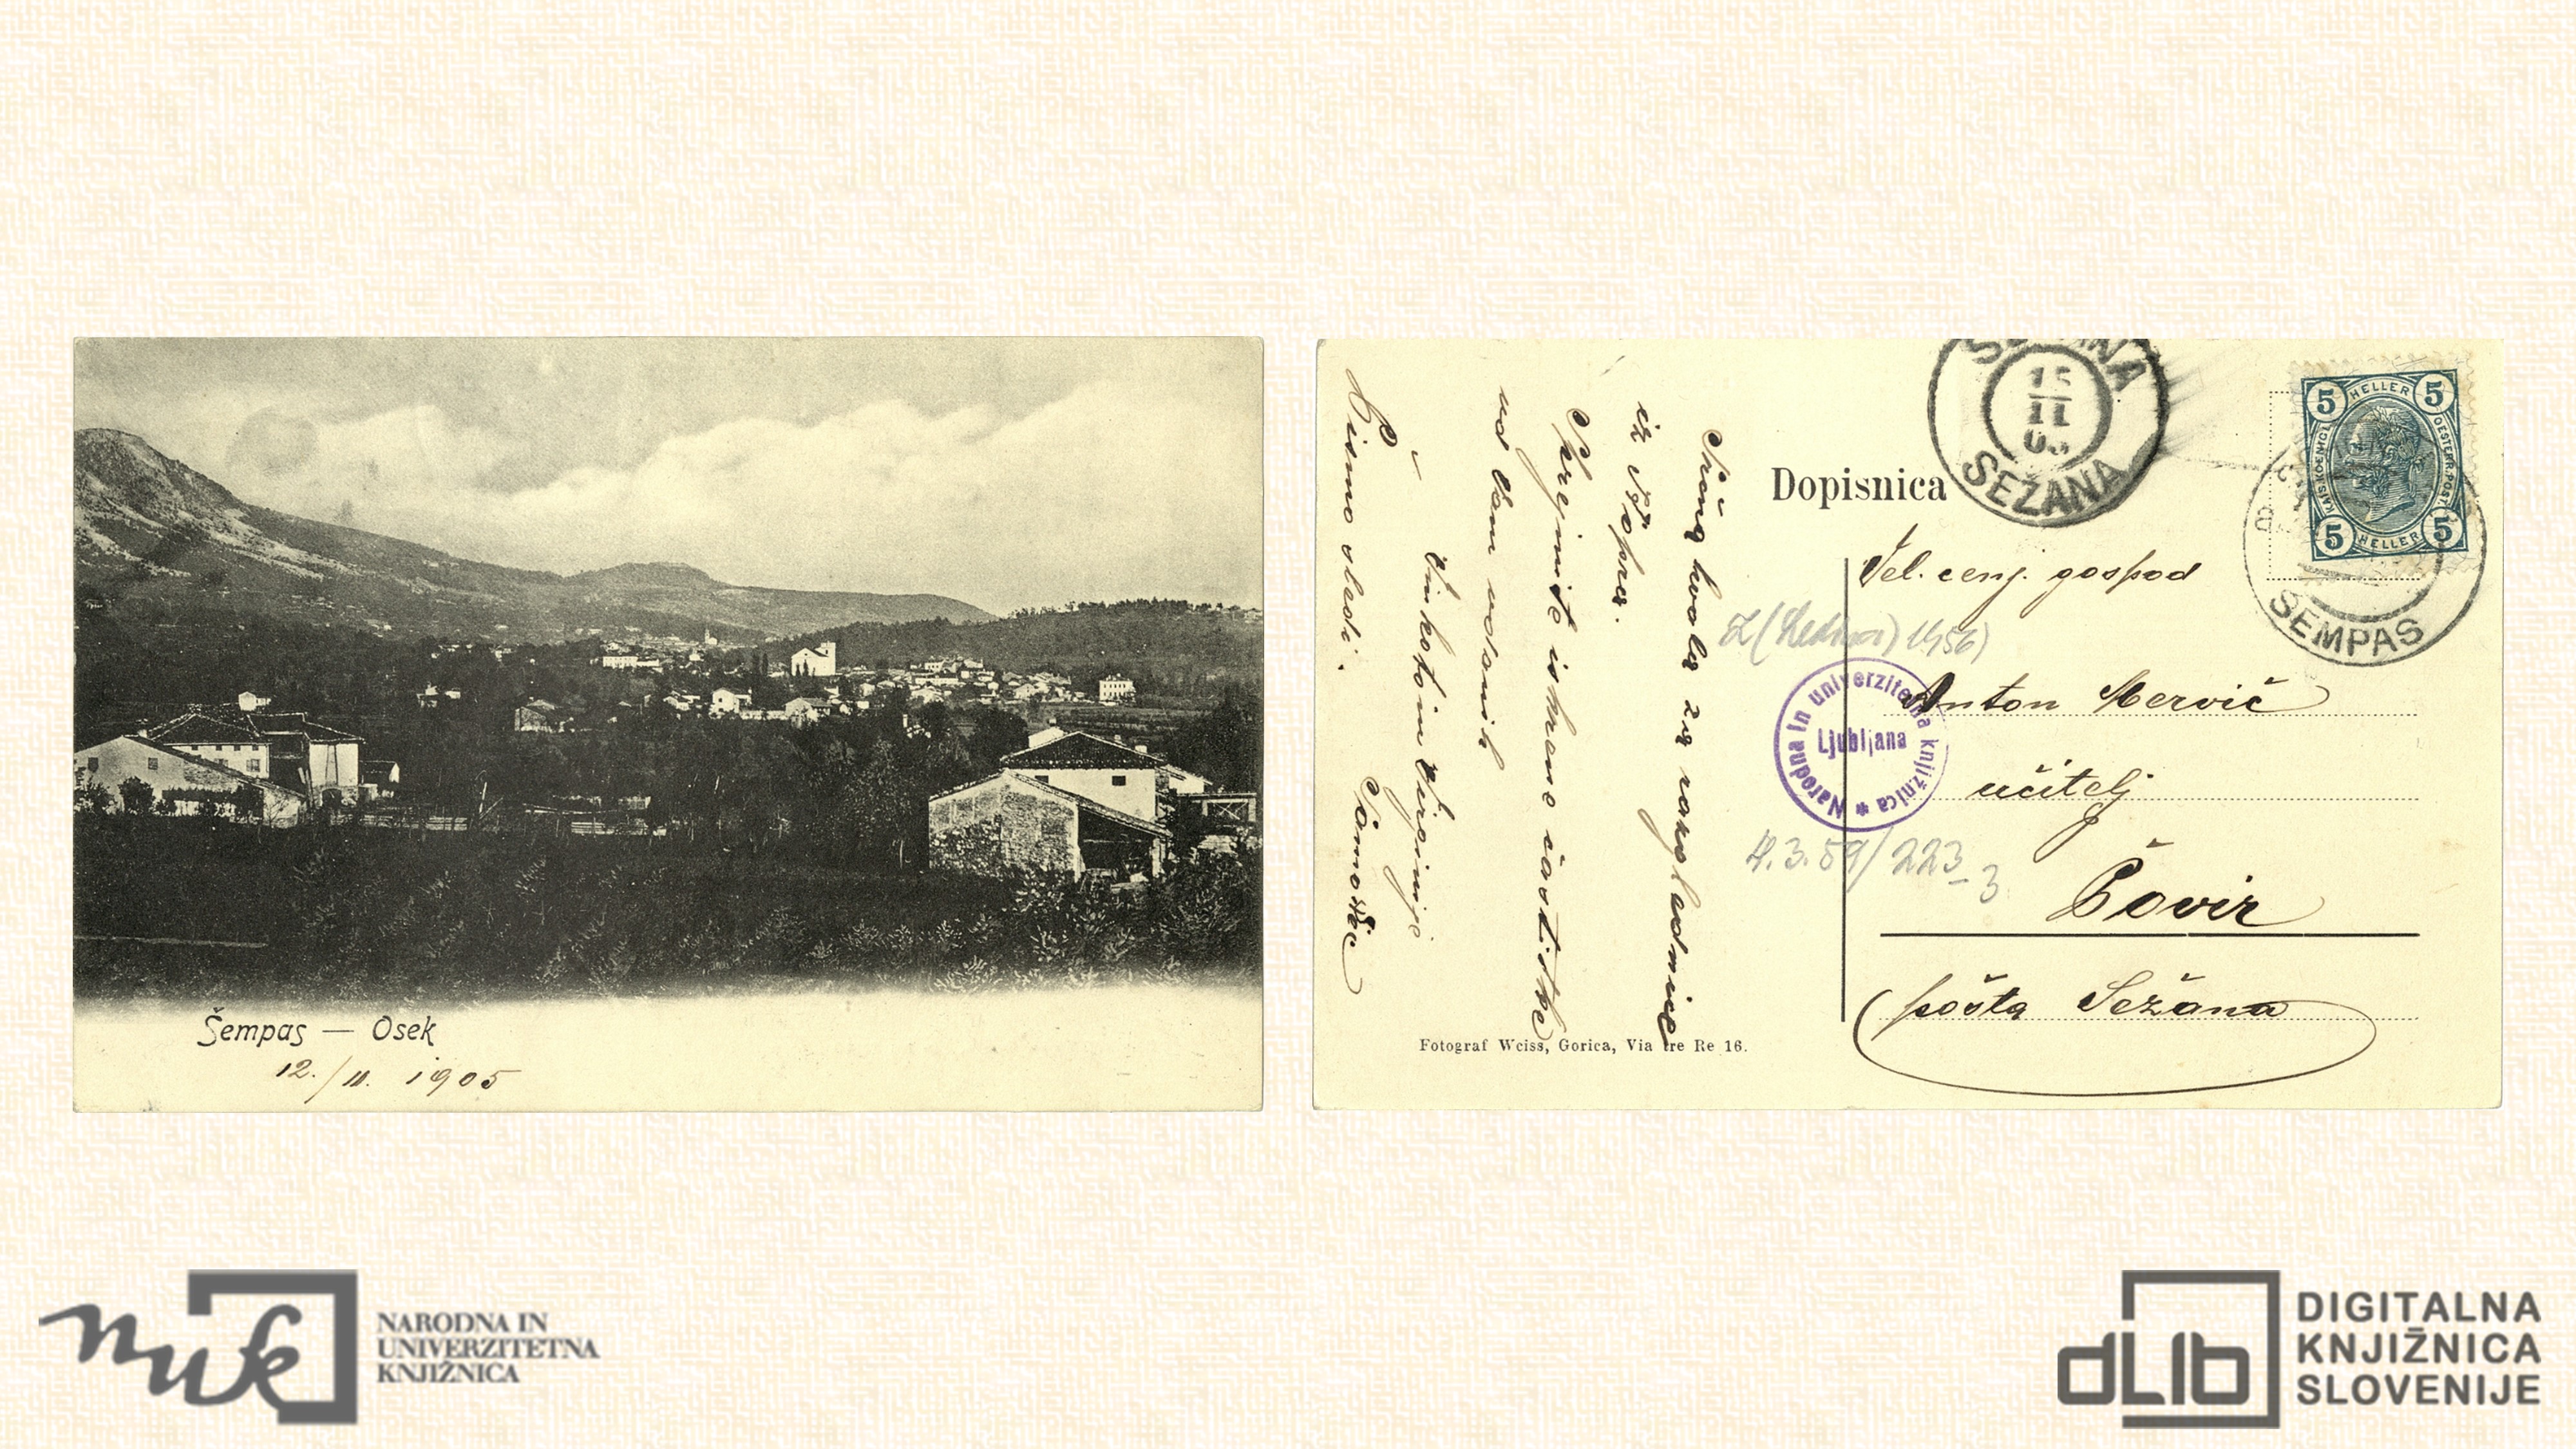 Šempas — Osek
12./11. 1905
Dopisnica
SEŽANA
15
11
05
SEŽANA
5 HELLER 5
KAIS. KOENIGL. OESTERR. POST
5 HELLER 5
ŠEMPAS
Vel. cenj. gospod
Anton Mervič
učitelj
Povir
pošta Sežana
Z (Ledina) 1956)
Narodna in univerzitetna knjižnica
Ljubljana
4.3.59/223-3
Srčna hvala za razglednice
iz Kopra.
Sprejmite iskrene čestitke
od Vam udanih
Vinkota in Virginije
Pismo sledi.
Fotograf Weiss, Gorica, Via tre Re 16.
nuk
NARODNA IN
UNIVERZITETNA
KNJIŽNICA
dLib
DIGITALNA
KNJIŽNICA
SLOVENIJE